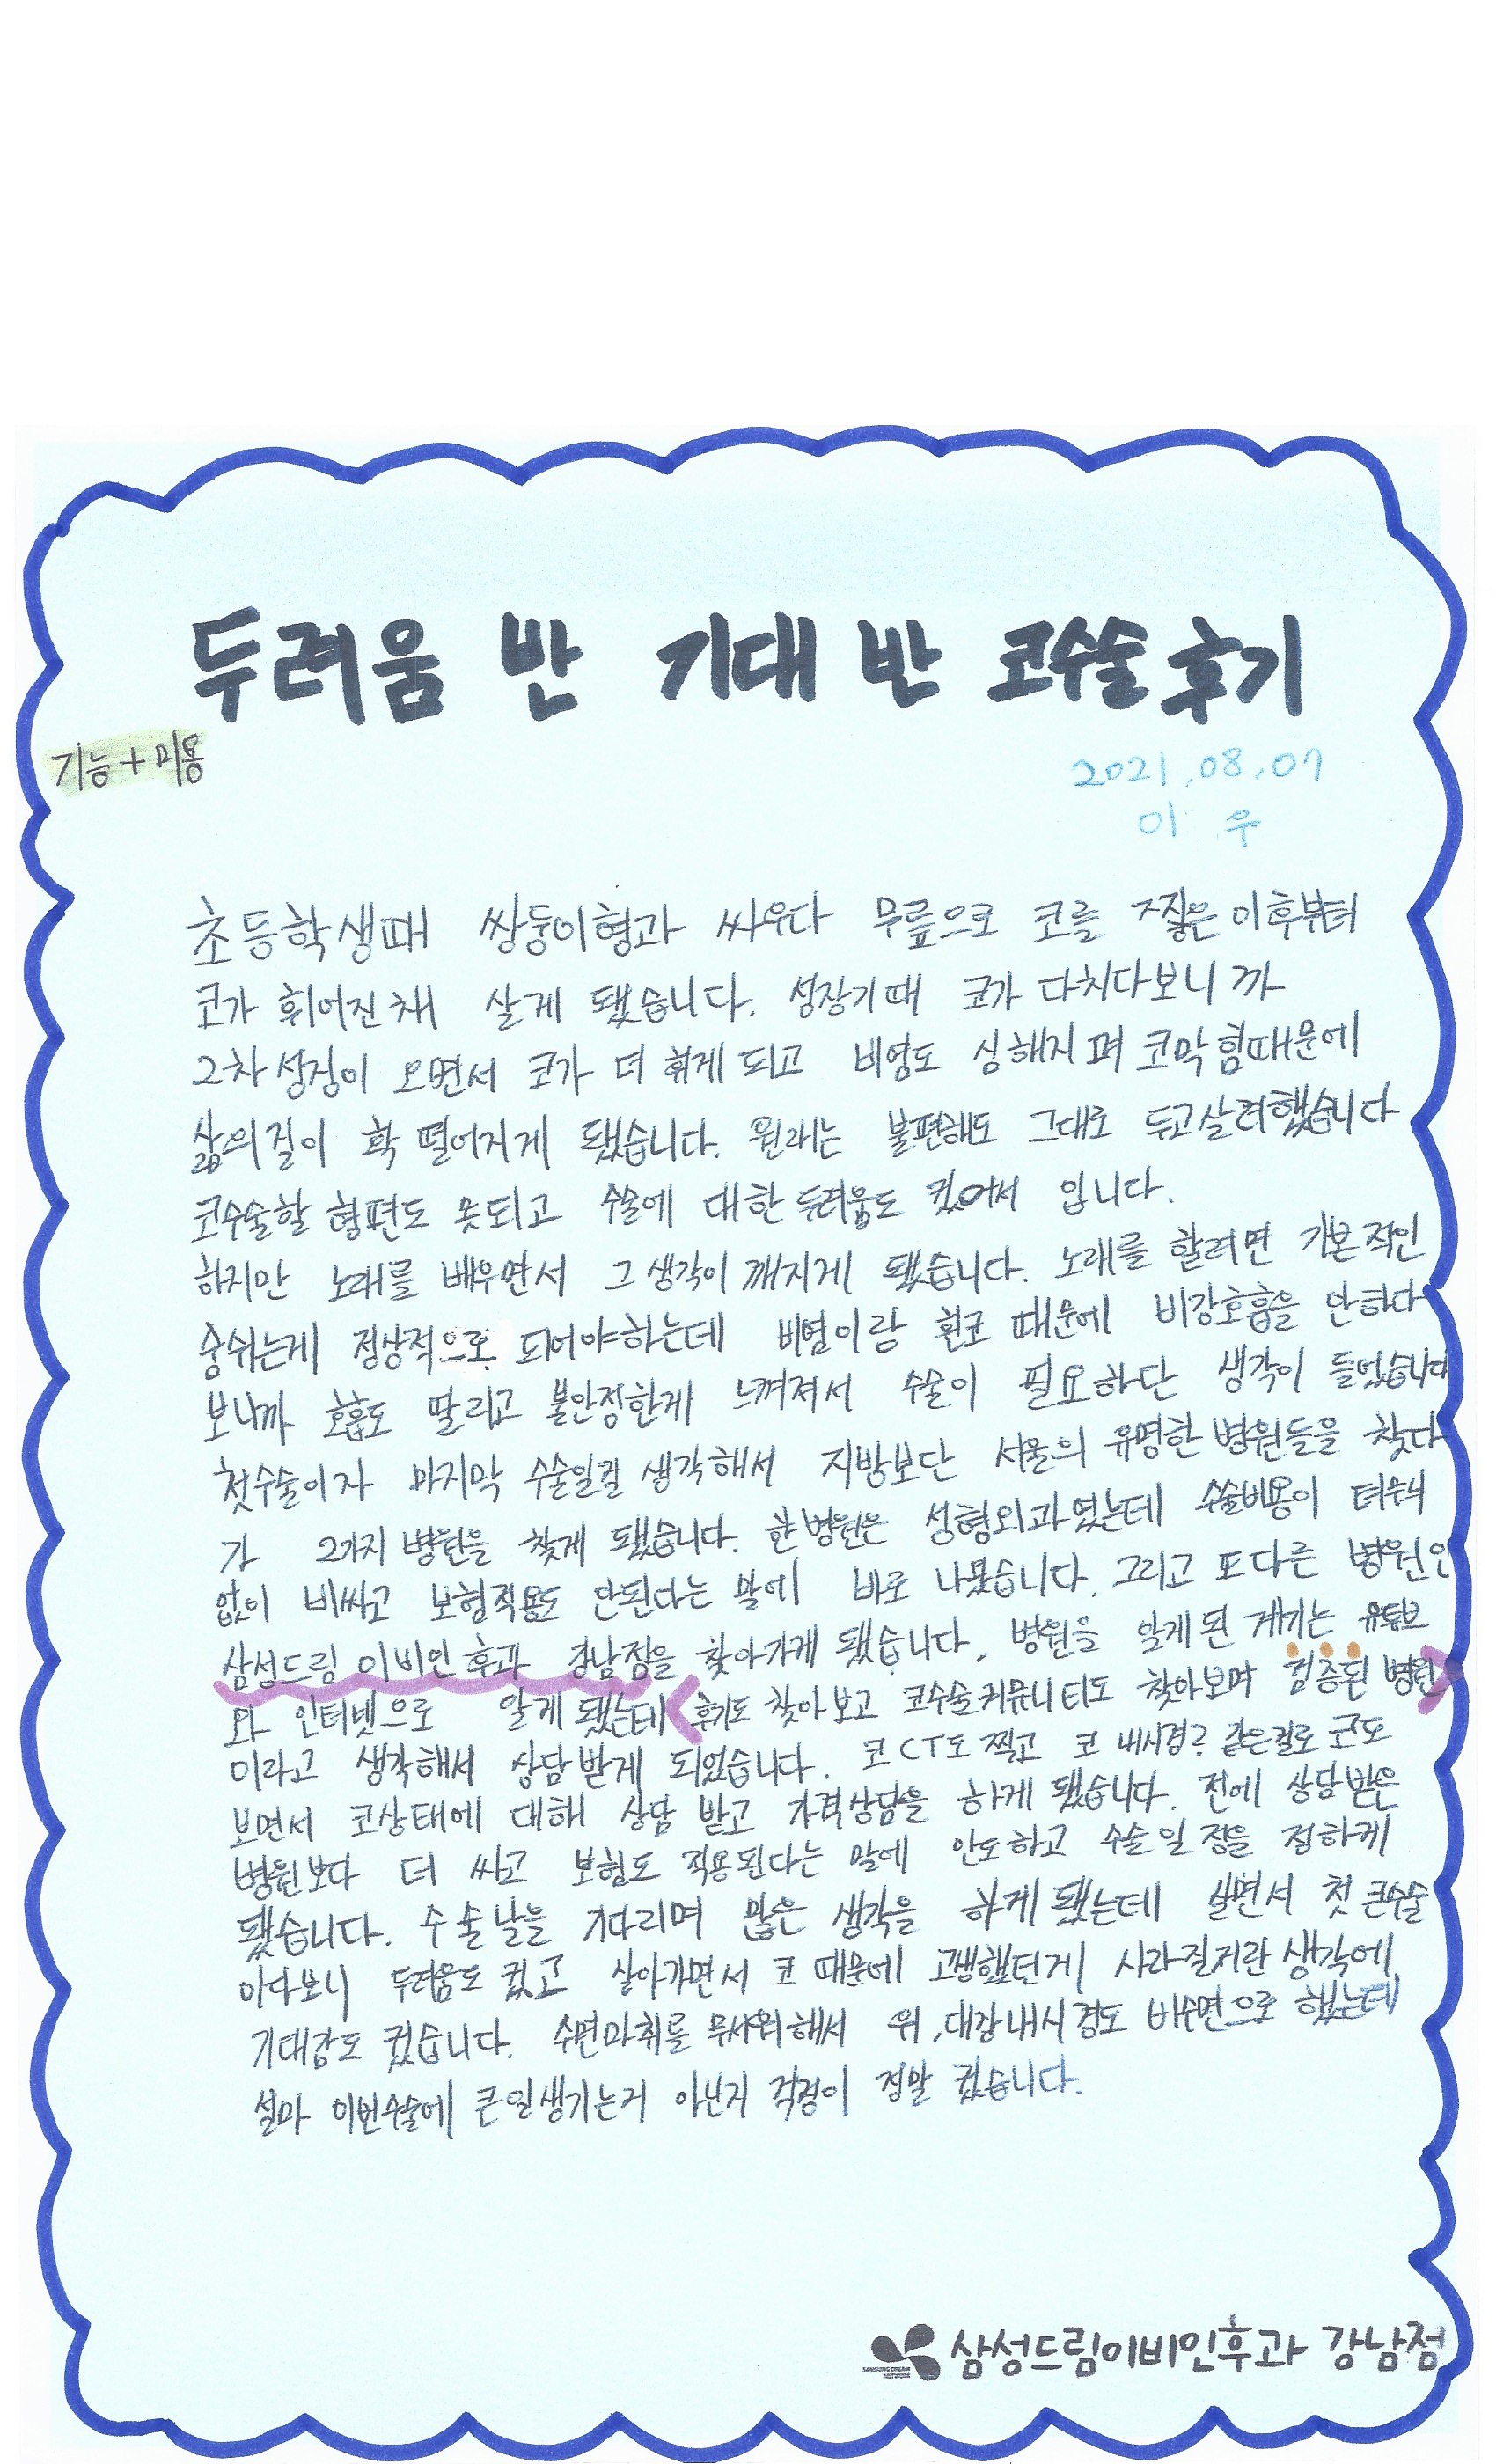 두려움 반 기대 반 코수술 후기
기능+미용
2021.08.07
이 우
초등학생때 쌍둥이형과 싸우다 무릎으로 코를 찧은 이후부터
코가 휘어진채 살게 됐습니다. 성장기때 코가 다치다보니까
2차성징이 오면서 코가 더 휘게 되고 비염도 심해지며 코막힘때문에
삶의질이 확 떨어지게 됐습니다. 원래는 불편해도 그대로 두고살려했습니다
코수술할 형편도 못되고 수술에 대한 두려움도 컸어서 입니다.
하지만 노래를 배우면서 그 생각이 깨지게 됐습니다. 노래를 할려면 기본적인
숨쉬는게 정상적으로 되어야하는데 비염이랑 휜코 때문에 비강호흡을 안하다
보니까 호흡도 딸리고 불안정한게 느껴져서 수술이 필요하단 생각이 들었습니다
첫수술이자 마지막 수술일걸 생각해서 지방보단 서울의 유명한 병원들을 찾다
가 2가지 병원을 찾게 됐습니다. 한 병원은 성형외과였는데 수술비용이 터무니
없이 비싸고 보험적용도 안된다는 말에 바로 나왔습니다. 그리고 또다른 병원인
삼성드림 이비인후과 강남점을 찾아가게 됐습니다. 병원을 알게된 계기는 유튜브
와 인터넷으로 알게 됐는데 후기도 찾아보고 코수술커뮤니티도 찾아보며 검증된 병원
이라고 생각해서 상담받게 되었습니다. 코CT도 찍고 코 내시경? 같은걸로 코도
보면서 코상태에 대해 상담 받고 가격상담을 하게 됐습니다. 전에 상담받은
병원보다 더 싸고 보험도 적용된다는 말에 안도하고 수술일정을 정하게
됐습니다. 수술날을 기다리며 많은 생각을 하게 됐는데 살면서 첫 큰수술
이다보니 두려움도 컸고 살아가면서 코 때문에 고생했던게 사라질거란 생각에
기대감도 컸습니다. 수면마취를 무서워해서 위,대장내시경도 비수면으로 했는데
설마 이번수술에 큰일생기는거 아닌지 걱정이 정말 컸습니다.
삼성드림이비인후과 강남점